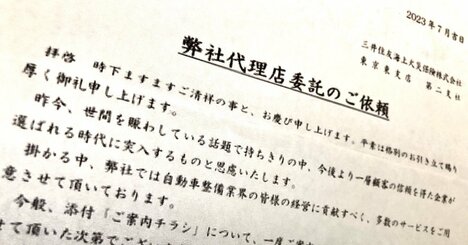 2023年7月吉日
三井住友海上火災保険株式会社
東京東支店 第二支社
弊社代理店委託のご依頼
拝啓 時下ますますご清祥の事と、お慶び申し上げます。平素は格別のお引き立て賜り
厚く御礼申し上げます。
昨今、世間を賑わしている話題で持ちきりの中、今後より一層顧客の信頼を得た企業が
選ばれる時代に突入するものと思慮いたします。
掛かる中、弊社では自動車整備業界の皆様の経営に貢献すべく、多数のサービスをご用
意させて頂いております。
今般、添付「ご案内チラシ」について、一度ご案
せて頂いた次第でござ